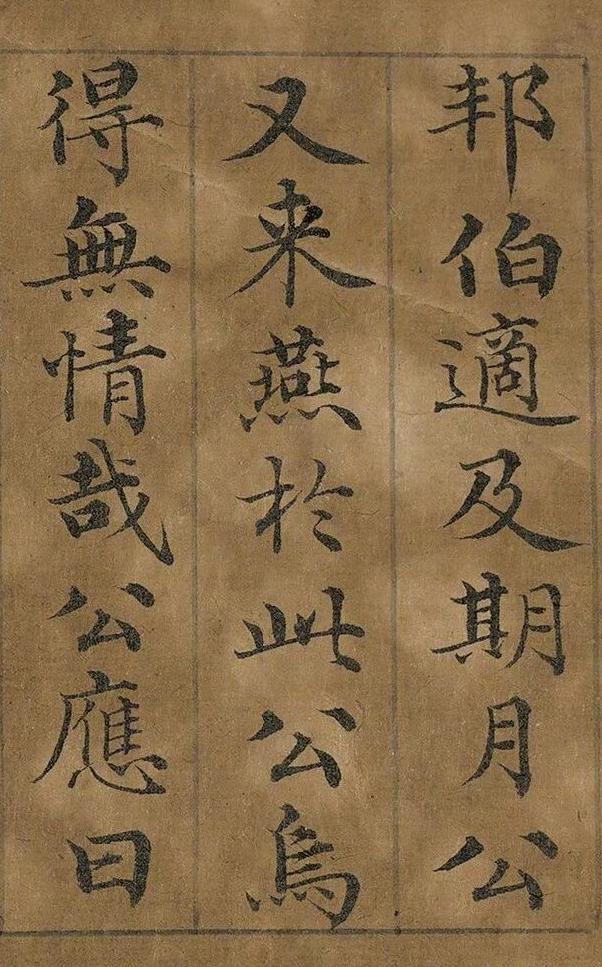 邦伯適及期月公
又来燕於此公烏
得無情哉公應曰